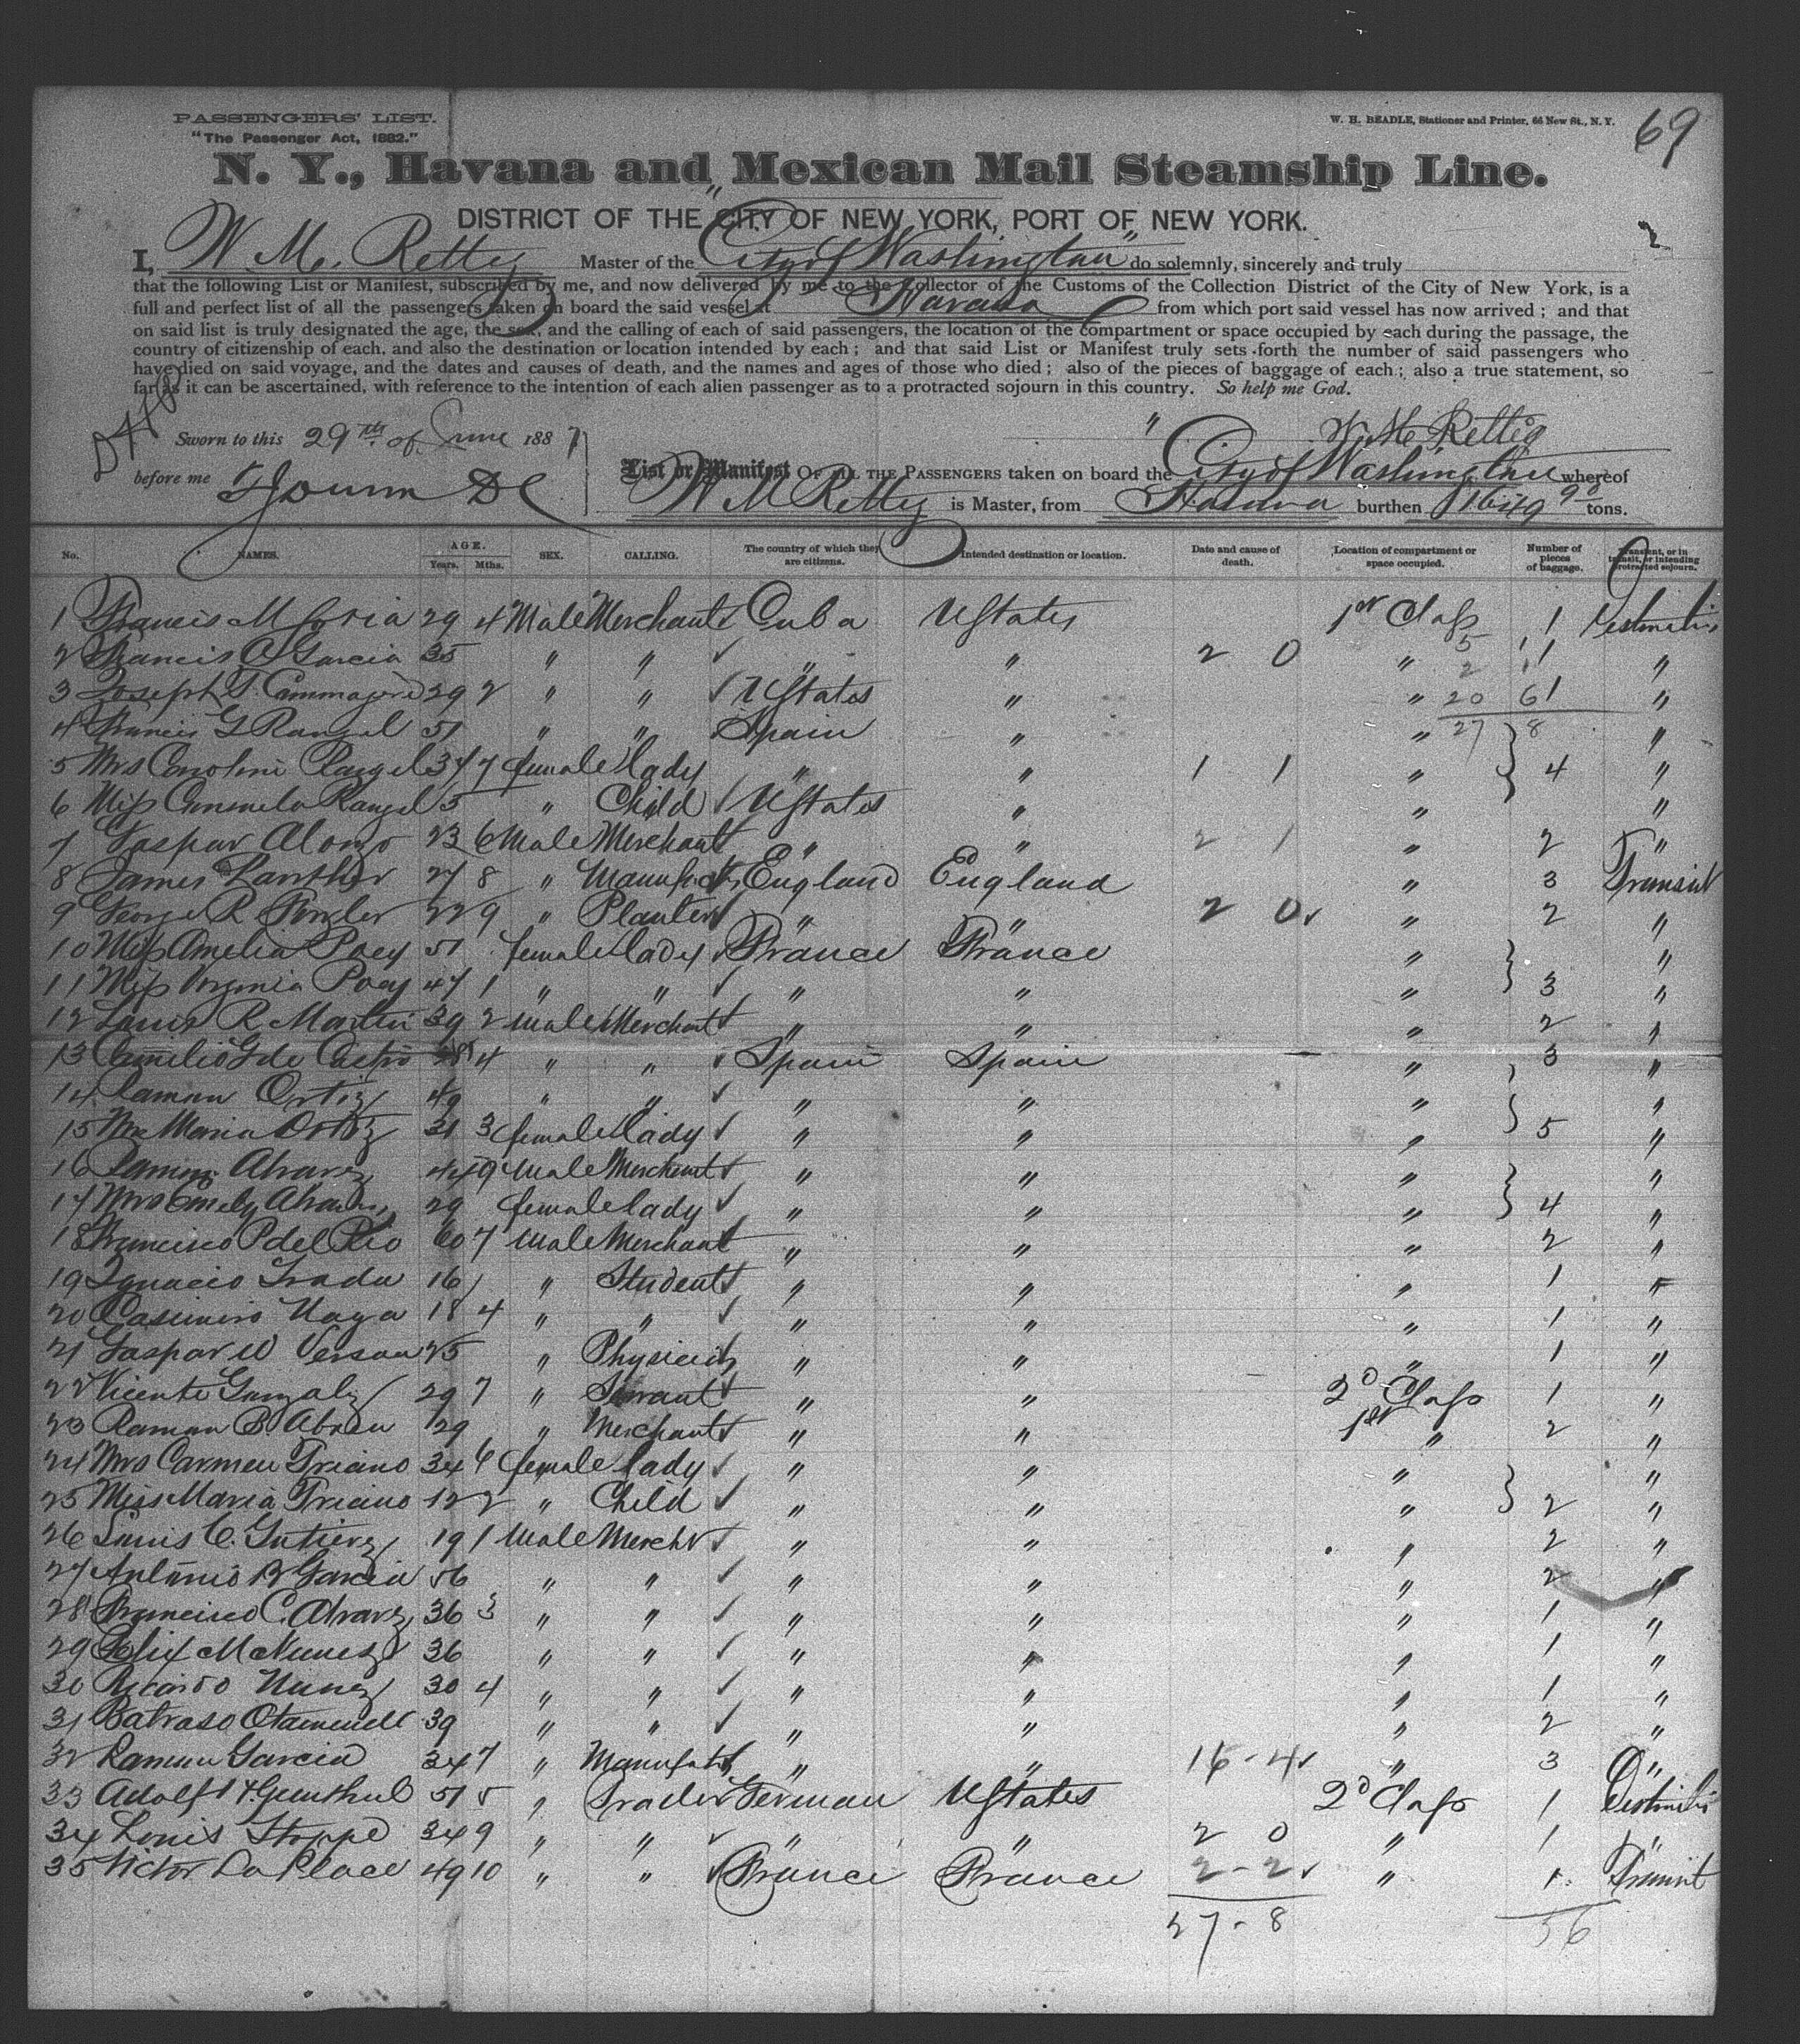 PASSENGERS' LIST.
"The Passenger Act, 1882."
W. H. BEADLE, Stationer and Printer, 66 New St., N. Y.
69
N. Y., Havana and Mexican Mail Steamship Line.
DISTRICT OF THE CITY OF NEW YORK, PORT OF NEW YORK.
2
I, W. M. Rettig Master of the "City of Washington" do solemnly, sincerely and truly
that the following List or Manifest, subscribed by me, and now delivered by me to the Collector of the Customs of the Collection District of the City of New York, is a
full and perfect list of all the passengers taken on board the said vessel at Havana from which port said vessel has now arrived; and that
on said list is truly designated the age, the sex, and the calling of each of said passengers, the location of the compartment or space occupied by each during the passage, the
country of citizenship of each, and also the destination or location intended by each; and that said List or Manifest truly sets forth the number of said passengers who
have died on said voyage, and the dates and causes of death, and the names and ages of those who died; also of the pieces of baggage of each; also a true statement, so
far as it can be ascertained, with reference to the intention of each alien passenger as to a protracted sojourn in this country. So help me God.
Sworn to this 29th of June 1887
W. M. Rettig
before me
List or Manifest OF ALL THE PASSENGERS taken on board the "City of Washington whereof
W M Rettig is Master, from Havana burthen 1649 98 tons.
No. NAMES. AGE. Years. Mths. SEX. CALLING. The country of which they are citizens. Intended destination or location. Date and cause of death. Location of compartment or space occupied. Number of pieces of baggage. Transient, or in transit, or intending protracted sojourn.
1 Francis M 29 4 Male Merchant Cuba UStates 1st Class 1
2 Francis Garcia 35 " " " " 2 0 " 5 1 "
3 Joseph T. 29 2 " " UStates " " 2 20 6 1 "
4 Francis G Rangel 51 " " Spain " " 27 8 "
5 Mrs Caroline Rangel 34 7 female lady " " 1 1 " 4 "
6 Miss Consuelo Rangel 5 " Child UStates " " "
7 Gaspar Alonso 23 6 Male Merchant " " 2 1 " 2 "
8 James 27 8 " England England " 3 Transit
9 George R. 22 9 " Planter " " 2 0 " 2 "
10 Miss Amelia Poey 51 female lady France France " "
11 Miss Virginia Poey 47 1 " " " " " 3 "
12 Louis R Martin 39 2 male Merchant " " " 2 "
13 Camilio G de Castro 28 4 " " Spain Spain " 3 "
14 Ramon Ortiz 49 " " " " " "
15 Mrs Maria Ortiz 31 3 female lady " " " 5 "
16 Ramon Alvarez 44 9 male Merchant " " " "
17 Mrs Emely Alvarez 29 female lady " " " 4 "
18 Francisco P del Rio 60 7 Male Merchant " " " 2 "
19 Ignacio 16 1 " Student " " " 1 "
20 Casimiro Naya 18 4 " " " " " 1 "
21 Gaspar W 25 " Physician " " " 1 "
22 Vicente Gonzalez 29 7 " Servant " " 2d Class 1 "
23 Ramon B. Abreu 29 " Merchant " " 1st " 2 "
24 Mrs Carmen Triano 34 6 female lady " " " "
25 Miss Maria Triano 12 2 " Child " " " 2 "
26 Louis C. Gutierez 19 1 Male Mercht " " " 2 "
27 Antonio R Garcia 56 " " " " " 2 "
28 Francisco C. Alvarez 36 3 " " " " " 1 "
29 Felix M Nunez 36 " " " " " 1 "
30 Ricardo Nunez 30 4 " " " " " 1 "
31 39 " " " " " 2 "
32 Ramon Garcia 34 7 " " " 16 - 4 " 3 "
33 Adolf 51 5 " Trader German UStates 2d Class 1
34 Louis Stoppe 34 9 " " " " 2 0 " 1 "
35 Victor La Place 49 10 " " France France 2 - 2 " 1 Transit
27 - 8 56